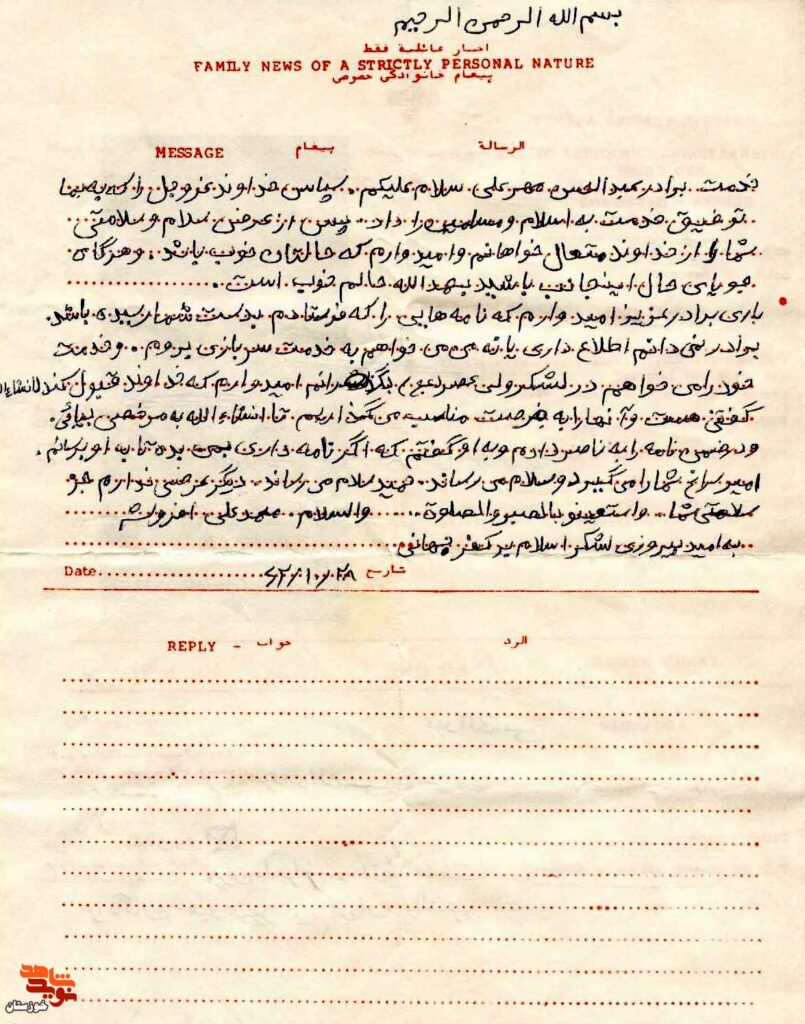 بسم الله الرحمن الرحیم
اخبار عائلية فقط
FAMILY NEWS OF A STRICTLY PERSONAL NATURE
پیغام خانوادگی خصوصی
MESSAGE پیغام الرسالة
خدمت برادر عبدالحسن مهرعلی سلام علیکم. سپاس خداوند عزوجل را که به شما
توفیق خدمت به اسلام و مسلمین را داد. پس از عرض سلام و سلامتی
شما را از خداوند متعال خواهانم و امیدوارم که حالتان خوب باشد. و هرگاه
جویای حال اینجانب باشید بحمدالله حالم خوب است.
باری برادر عزیز امیدوارم که نامه هایی را که فرستادم بدست شما رسیده باشد.
برادر نمی دانم اطلاع داری یا نه می خواهم به خدمت سربازی بروم. و خدمت
خود را می خواهم در لشکر ولی عصر (عج) بگذرانم امیدوارم که خداوند قبول کند انشاءالله
گفتنی هست و آنها را به فرصت مناسب می گذاریم تا انشاءالله به مرخصی بیائی.
و در ضمن نامه را به ناصر دادم و به او گفتم که اگر نامه داری بمن بده تا به او برسانم.
امیر سراغ شما را می گیرد و سلام می رساند. حمید سلام می رساند. دیگر عرضی ندارم جز
سلامتی شما. واستعینو بالصبر والصلوة. والسلام. محمد علی
به امید پیروزی لشکر اسلام بر کفر جهانی
Date 62/10/28 تاریخ
REPLY - جواب الرد
نوید شاهد
خوزستان